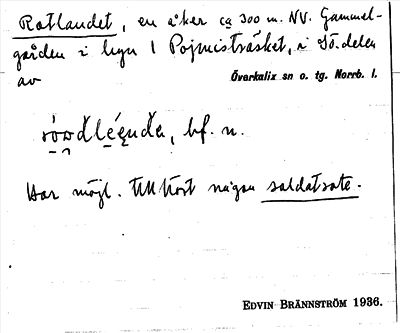 Rotlandet, en åker ca 300 m. NV. Gammel-
gården i byn l Pojmisträsket, i Sö. delen
av Överkalix sn o. tg. Norrb. l.
bf. n.
Har möjl. tillhört någon soldatrote.
EDVIN BRÄNNSTRÖM 1936.